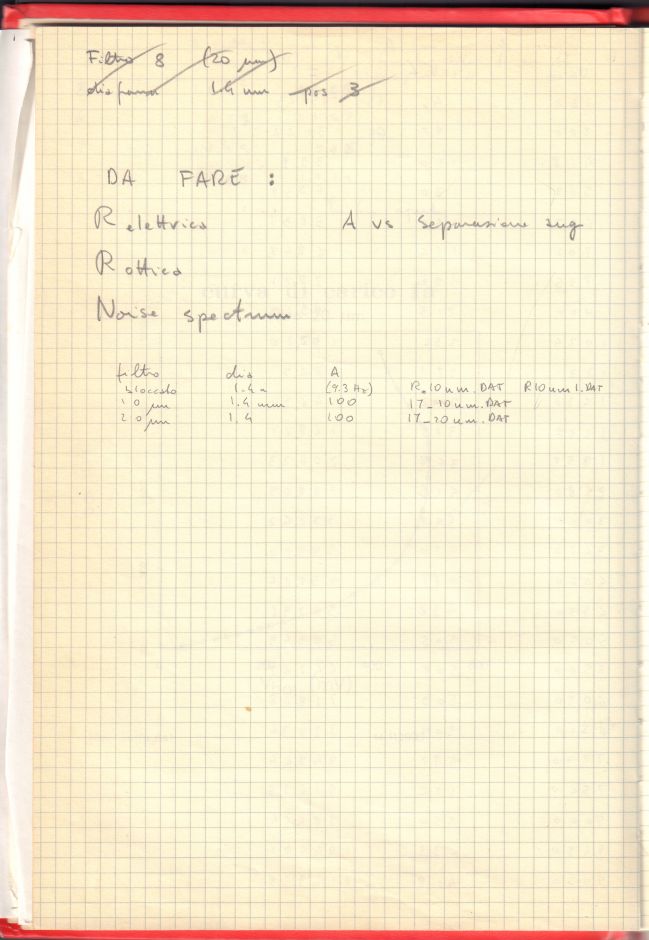 Filtro 8 (20 μm)
diaframma 1.4 mm pos 3
DA FARE :
R elettrica A vs separazione
R ottica
Noise spectrum
filtro dia A
bloccato 1.4 (9.3 Hz) R_10um.DAT R10um1.DAT
10 μm 1.4 mm 100 17_10um.DAT
20 μm 1.4 100 17_20um.DAT